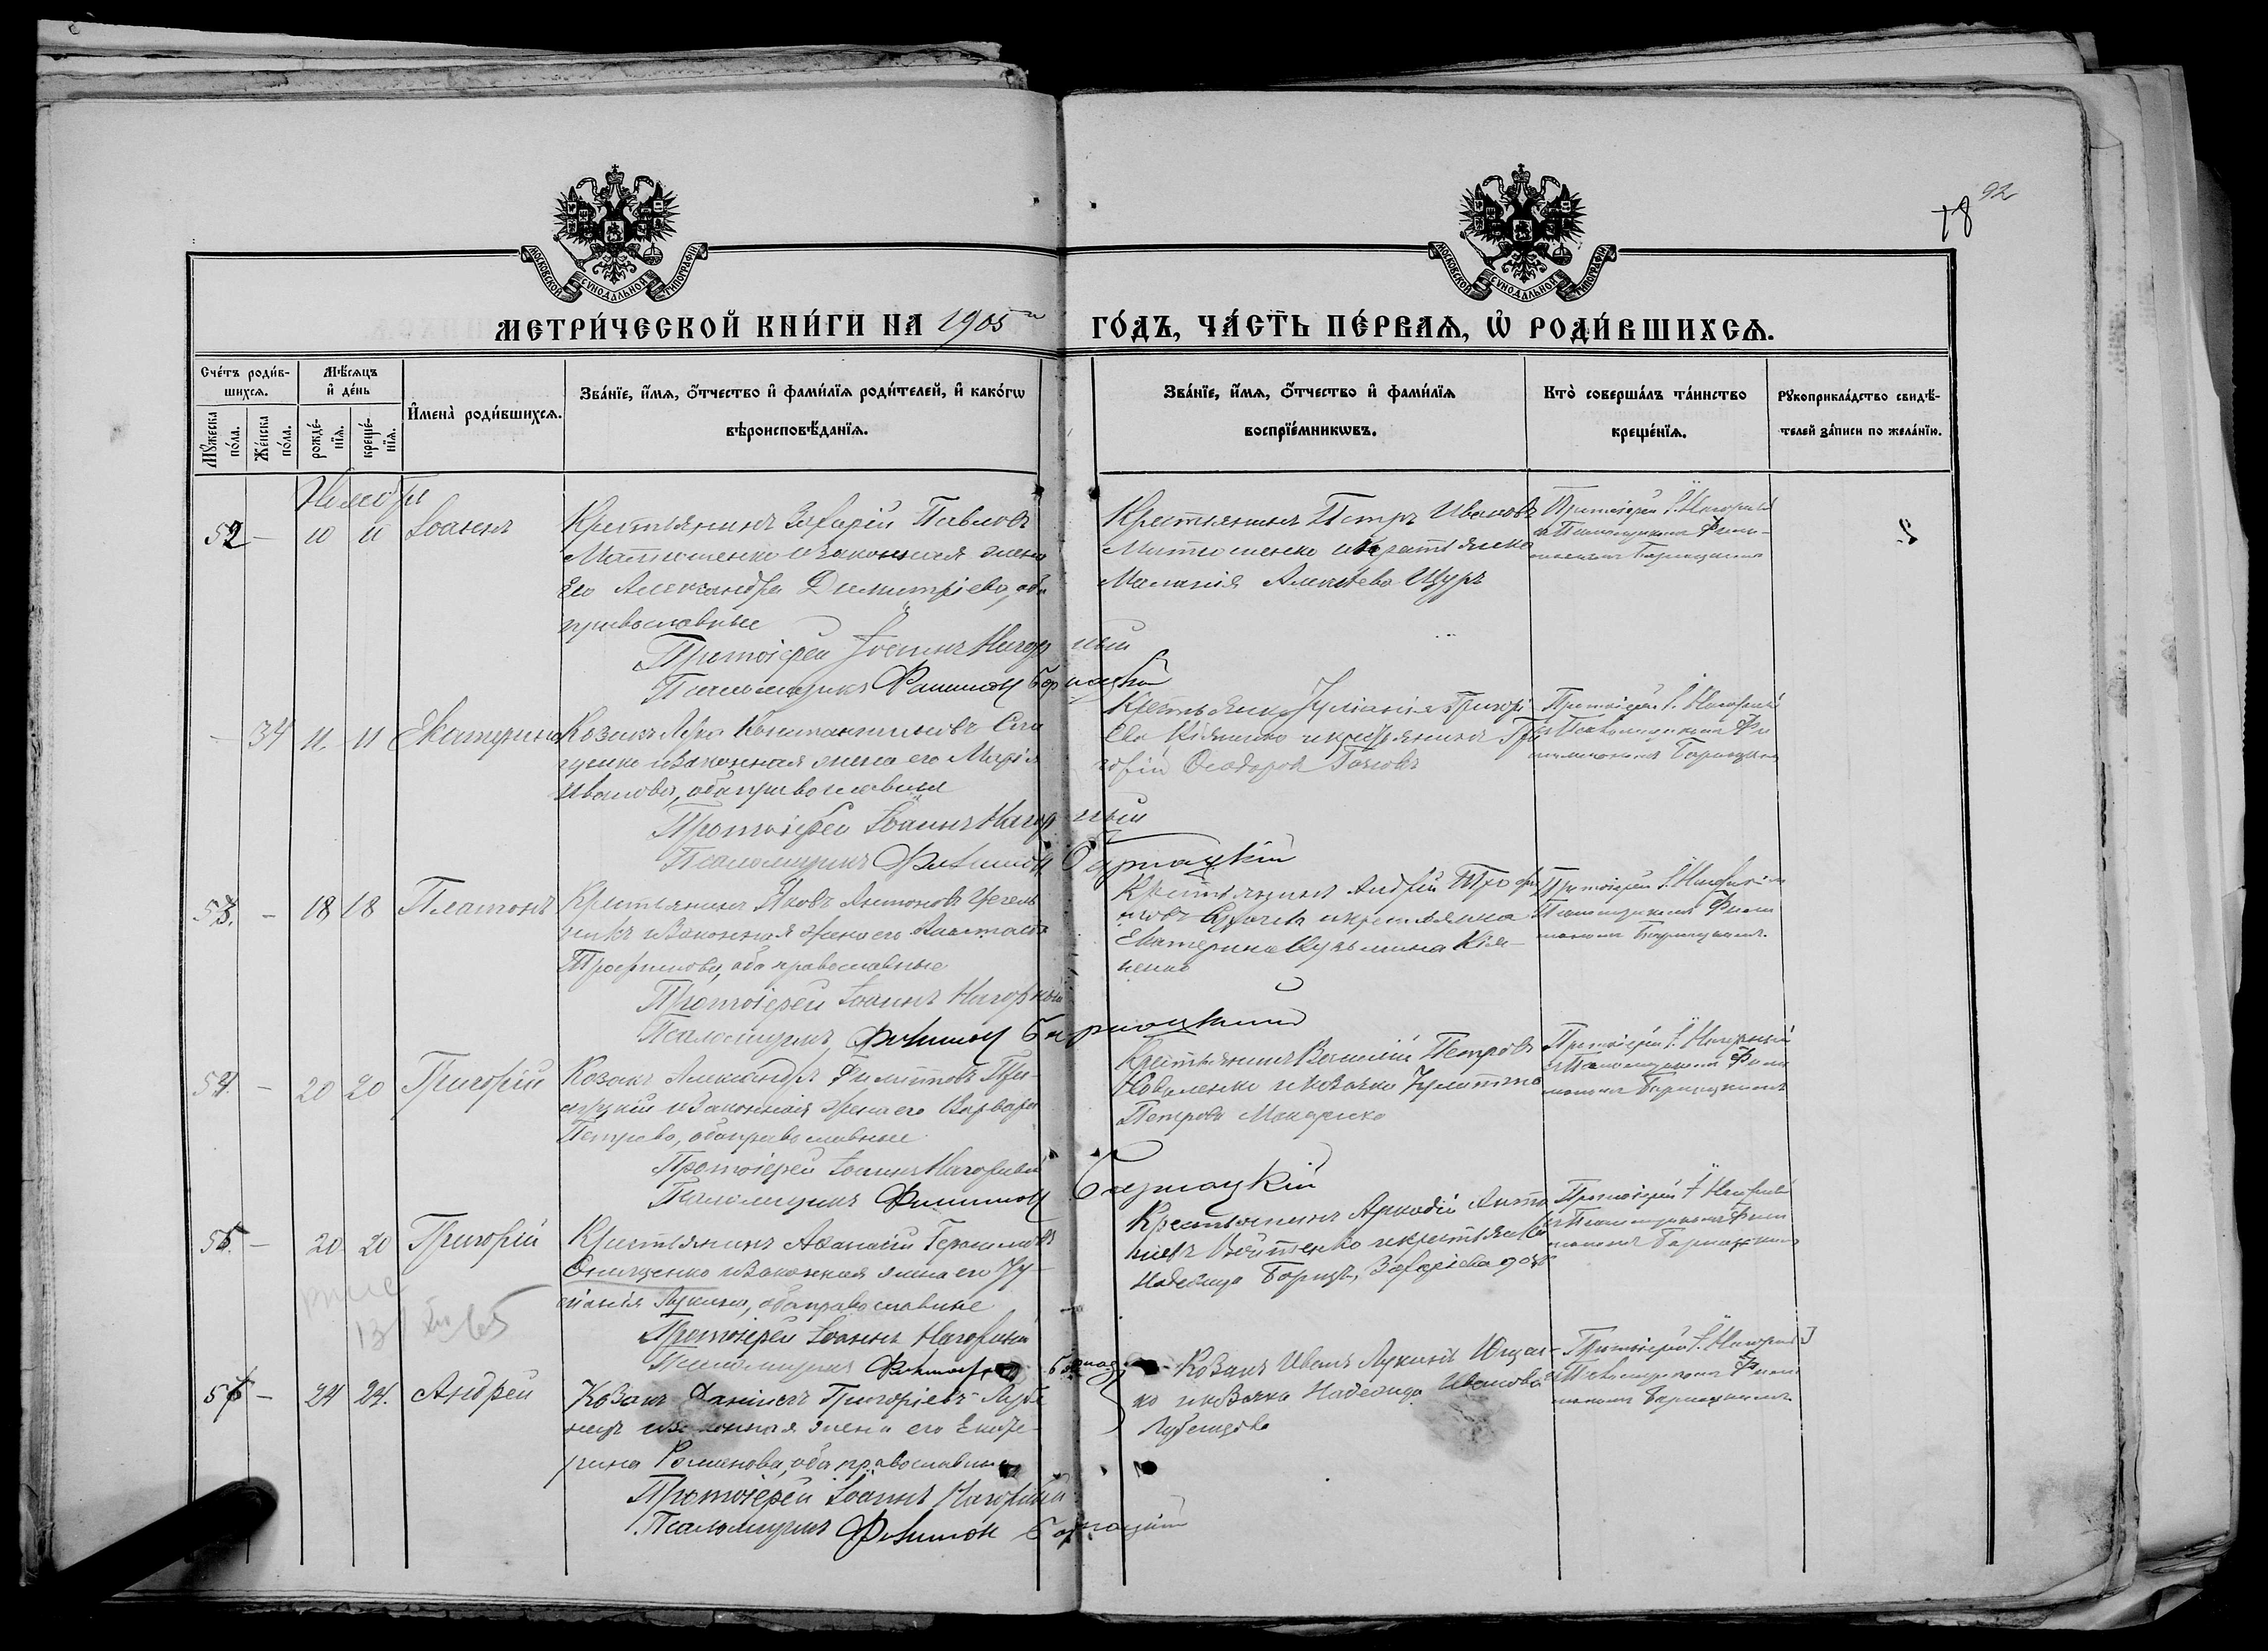 92
18
МОСКОВСКОЙ СѴНОДАЛЬНОЙ ТИПОГРАФІИ
МОСКОВСКОЙ СѴНОДАЛЬНОЙ ТИПОГРАФІИ
МЕТРИ́ЧЕСКОЙ КНИ́ГИ НА 1905 й
ГО́ДЪ, ЧА́СТЬ ПЕ́РВАЯ, Ѡ҆ РОДИ́ВШИХСѦ.
Сче́тъ роди́в-
шихсѧ.
Мꙋ́жеска по́ла.
Же́нска по́ла.
Мѣ́сѧцъ
и҆ де́нь
рожде́-
нїѧ.
креще́-
нїѧ.
И҆мена̀ роди́вшихсѧ.
Зва́нїе, и҆́мѧ, ѻ҆́тчество и҆ фами́лїѧ роди́телей, и҆ како́гѡ
вѣроисповѣ́данїѧ.
Зва́нїе, и҆́мѧ, ѻ҆́тчество и҆ фами́лїѧ
воспрїе́мникѡвъ.
Кто̀ соверша́лъ та́инство
креще́нїѧ.
Рꙋкоприкла́дство свидѣ́-
телей за́писи по жела́нїю.
52 - 10 11 Іоаннъ
Крестьянинъ Захарій Павловъ
Матюшенко и законная жена
его Александра Димитріева, оба
православные
Протоіерей Іоаннъ Нагорный
Псаломщикъ Филимонъ Бармацкій
Крестьянинъ Петръ Ивановъ
Матюшенко и крестьянка
Маланія Алексѣева Щуръ
Протоіерей І. Нагорный
съ Псаломщикомъ Фили-
мономъ Бармацкимъ
- 34 11 11 Екатерина
Козакъ Лука Константиновъ
и законная жена его Марія
Иванова, оба православные
Протоіерей Іоаннъ Нагорный
Псаломщикъ Филимонъ Бармацкій
Крестьянка Іуліанія Григорі
ева и крестьянинъ Гри
горій Ѳеодоровъ
Протоіерей І. Нагорный
съ Псаломщикомъ Фи
лимономъ Бармацкимъ
53. - 18 18 Платонъ
Крестьянинъ Яковъ Антоновъ
и законная жена его Анастасія
Трофимова, оба православные
Протоіерей Іоаннъ Нагорный
Псаломщикъ Филимонъ Бармацкій
Крестьянинъ Андрей
и крестьянка
Екатерина Кузьмина Кія-
ненко
Протоіерей І. Нагорный
съ Псаломщикомъ Фили
мономъ Бармацкимъ.
54. - 20 20 Григорій
Козакъ Александръ Филипповъ
и законная жена его Варвара
Петрова, оба православные
Протоіерей Іоаннъ Нагорный
Псаломщикъ Филимонъ Бармацкій
Крестьянинъ Василій Петровъ
Коваленко и козачка Іулитта
Петрова Макаренко
Протоіерей І. Нагорный
съ Псаломщикомъ Фили
мономъ Бармацкимъ
55. - 20 20 Григорій
Крестьянинъ Аѳанасій Герасимовъ
Онищенко и законная жена его Іу
ліанія Лукина, оба православные
Протоіерей Іоаннъ Нагорный
Псаломщикъ Филимонъ
Крестьянинъ Аркадій Анто
новъ Войтенко и крестьянка
Надежда Борщъ, Захаріева дочь
Протоіерей І. Нагорный
съ Псаломщикомъ Фили
мономъ Бармацкимъ
56 - 24 24. Андрей
Козакъ Даніилъ Григоріевъ Лубе
нецъ и законная жена его Екате
рина Романова, оба православные
Протоіерей Іоаннъ Нагорный
Псаломщикъ Филимонъ Бармацкій
Козакъ Иванъ Лукинъ Ющен-
ко и козачка Надежда Иванова
Лубенцова
Протоіерей І. Нагорный
съ Псаломщикомъ Фили
мономъ Бармацкимъ.